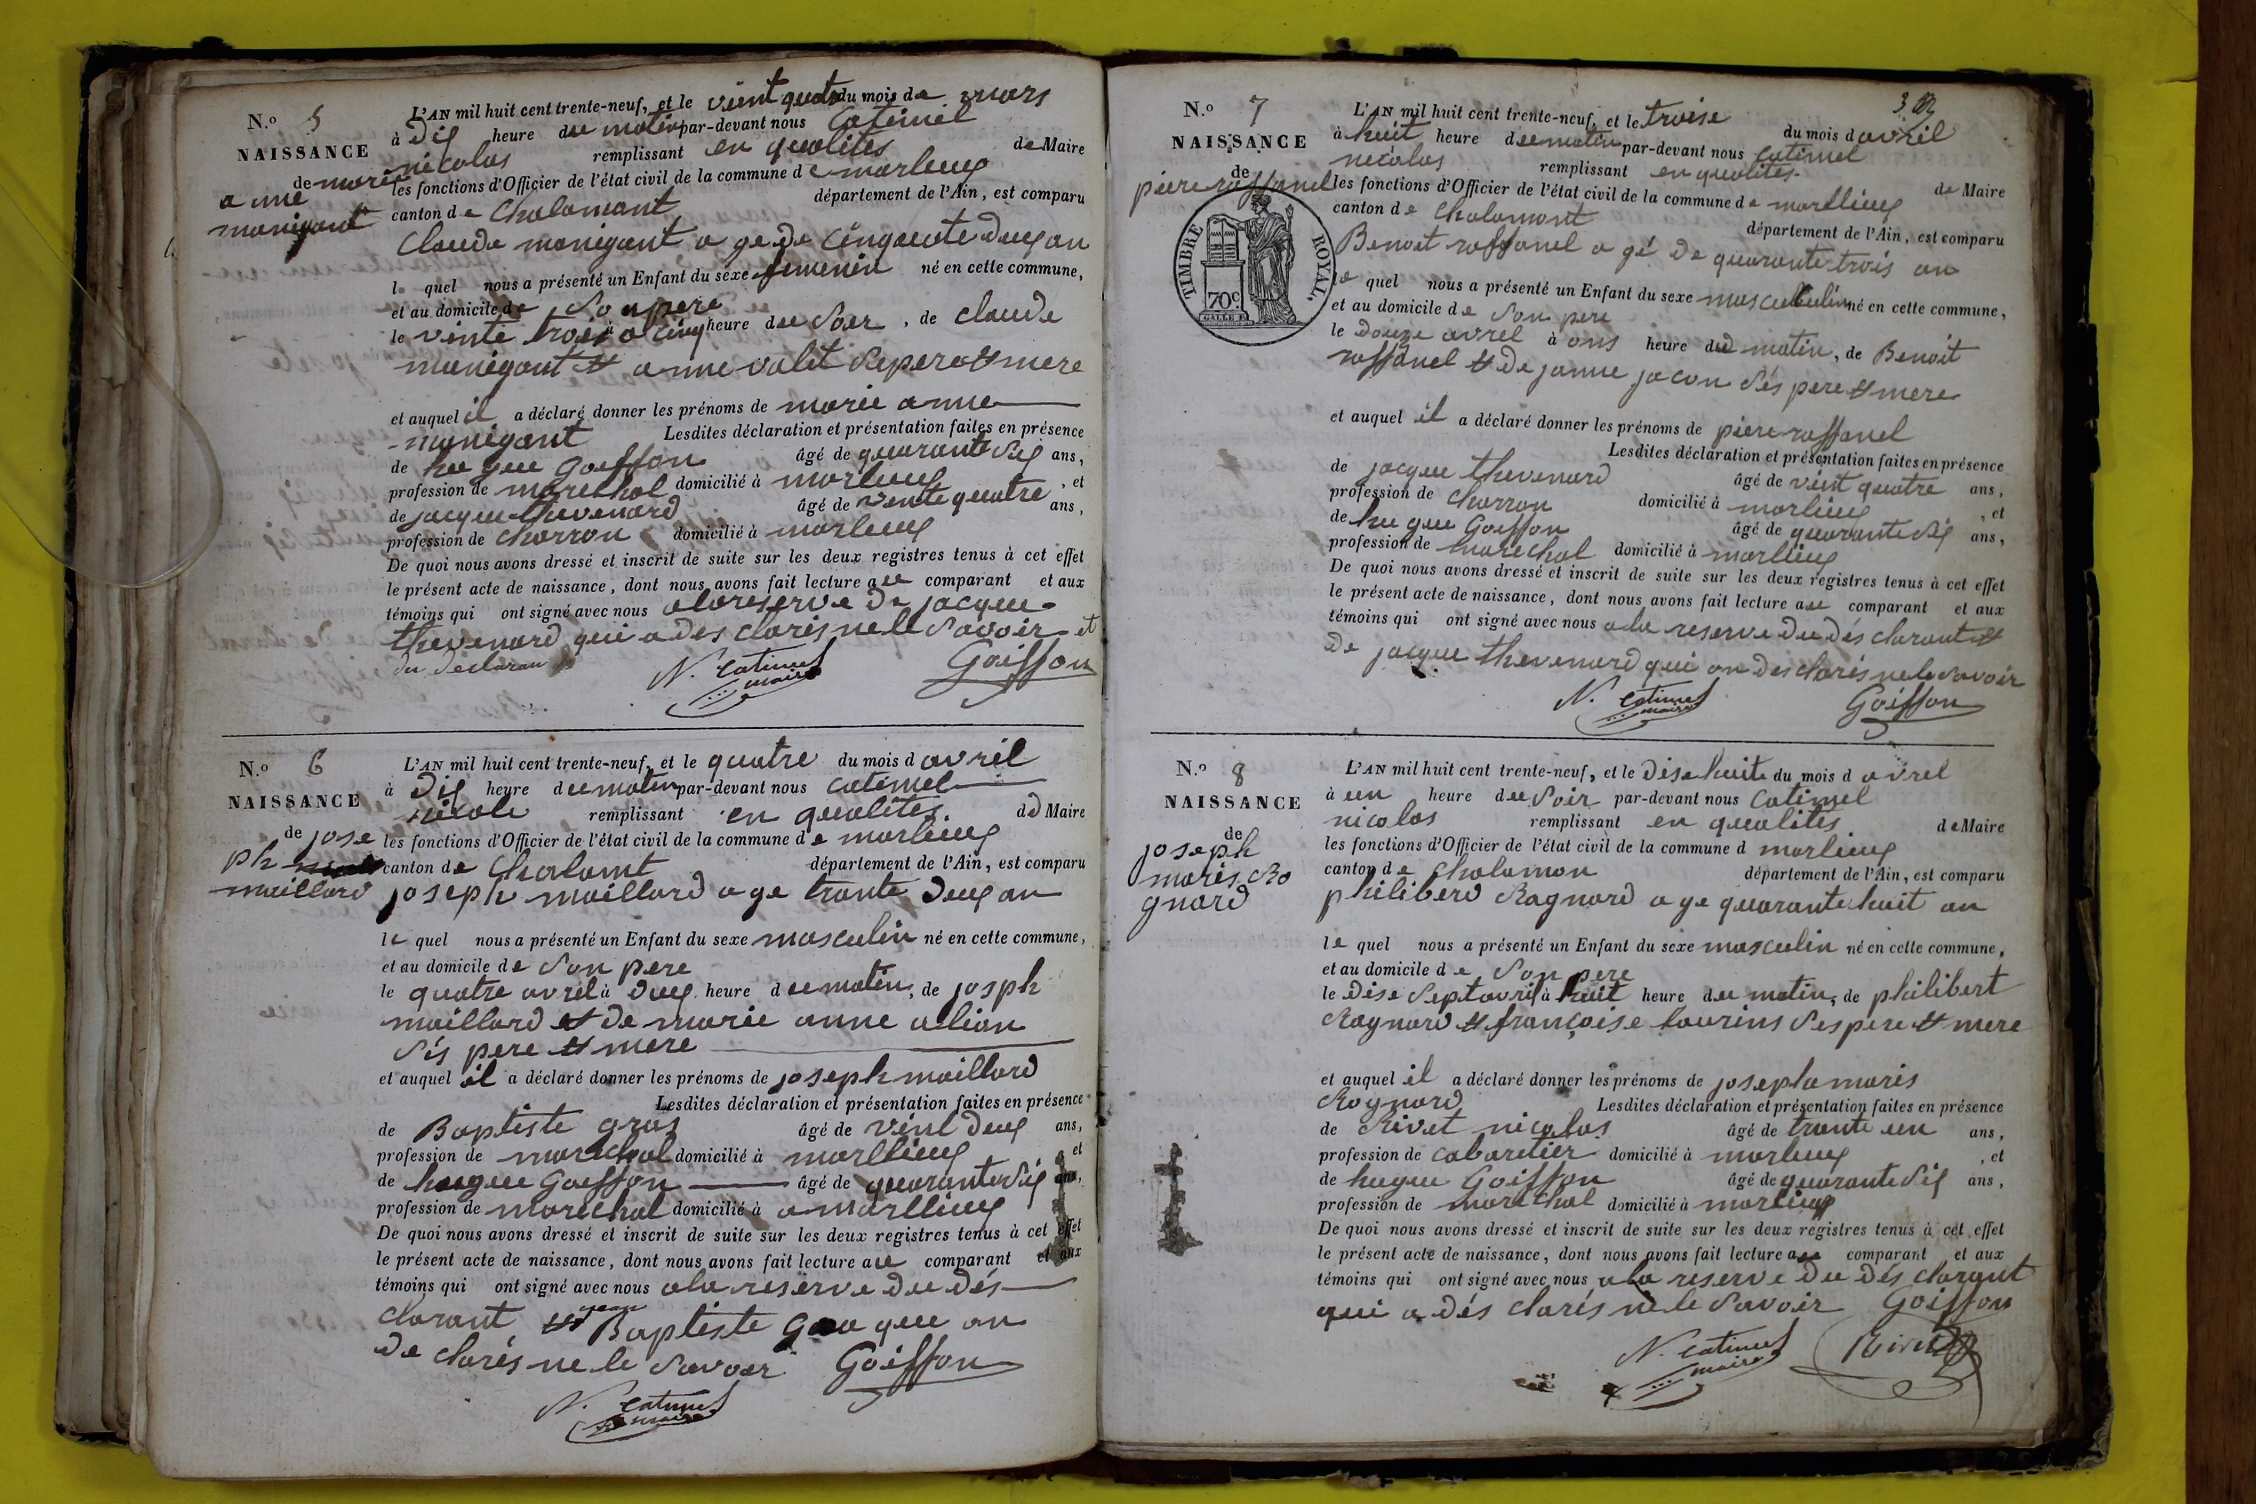 N.o 5
NAISSANCE
de marie
a nne
manigant
L'AN mil huit cent trente-neuf, et le veint quatre du mois de mars
à Dix heure du matin par-devant nous Catimel
nicolas remplissant en qualités de Maire
les fonctions d'Officier de l'état civil de la commune de marlieux
canton de Chalamant département de l'Ain, est comparu
Claude manigant a ge de cinquante deux an
l quel nous a présenté un Enfant du sexe femenin né en cette commune,
et au domicile de Son pere
le vente trois à cinq heure du Soir, de claude
manigant et anne valet Ses pere et mere
et auquel il a déclaré donner les prénoms de marie anne
manigant Lesdites déclaration et présentation faites en présence
de hugue Goiffon âgé de quarante Six ans,
profession de marechal domicilié à marlieux, et
de jacque thevenard âgé de vente quatre ans,
profession de charron domicilié à marlieux
De quoi nous avons dressé et inscrit de suite sur les deux registres tenus à cet effet
le présent acte de naissance, dont nous avons fait lecture au comparant et aux
témoins qui ont signé avec nous alareserve de jacque
thevenard qui a des claris ne le Savoir et
du declaran
N. Catimel
maire
Goiffon
N.o 6
NAISSANCE
de jose
ph
maillard
L'AN mil huit cent trente-neuf, et le quatre du mois d avril
à Dix heure du matin par-devant nous catimel
nicole remplissant en qualités de Maire
les fonctions d'Officier de l'état civil de la commune de marlieux
canton de Chalamt département de l'Ain, est comparu
joseph maillard a ge trante deux an
le quel nous a présenté un Enfant du sexe masculin né en cette commune,
et au domicile de Son pere
le quatre avril à deux heure du matin, de josph
maillard et de marie anne alion
Sés pere et mere
et auquel il a déclaré donner les prénoms de joseph maillard
Lesdites déclaration et présentation faites en présence
de Baptiste gras âgé de veint deux ans,
profession de marechal domicilié à marllieux, et
de hugue Goiffon âgé de quarante Six ans,
profession de marechal domicilié à a marllieux
De quoi nous avons dressé et inscrit de suite sur les deux registres tenus à cet effet
le présent acte de naissance, dont nous avons fait lecture au comparant et aux
témoins qui ont signé avec nous alareserve du dés
clarant et Baptiste que an
de clarés ne le Savoir Goiffon
N. Catimel
maire
3
N.o 7
NAISSANCE
de
piere raffanel
TIMBRE ROYAL.
70c
L'AN mil huit cent trente-neuf, et le troise du mois d avril
à huit heure du matin par-devant nous catimel
nicolas remplissant en qualités de Maire
les fonctions d'Officier de l'état civil de la commune de marllieux
canton de Chalamont département de l'Ain, est comparu
Benoit raffanel a gé de quarante trois an
le quel nous a présenté un Enfant du sexe masculin né en cette commune,
et au domicile de Son pere
le Douze avrel à ons heure du matin, de Benoit
raffanel et de janne jacon Sés pere et mere
et auquel il a déclaré donner les prénoms de piere raffanel
Lesdites déclaration et présentation faites en présence
de jacque thevenard âgé de veint quatre ans,
profession de charron domicilié à marlieux, et
de hugue Goiffon âgé de quarante Six ans,
profession de marechal domicilié à marlieux
De quoi nous avons dressé et inscrit de suite sur les deux registres tenus à cet effet
le présent acte de naissance, dont nous avons fait lecture au comparant et aux
témoins qui ont signé avec nous ala reserve du dés clarant et
de jacque thevenard qui on des clarés ne le Savoir
N. Catimel
maire
Goiffon
N.o 8
NAISSANCE
de
joseph
maris Ra
gnard
L'AN mil huit cent trente-neuf, et le Dise huite du mois d avrel
à un heure du Soir par-devant nous Catimel
nicolas remplissant en qualités de Maire
les fonctions d'Officier de l'état civil de la commune d marlieux
canton de Chalamon département de l'Ain, est comparu
philiberd Ragnard a ge quarante huit an
le quel nous a présenté un Enfant du sexe masculin né en cette commune,
et au domicile de Son pere
le Dise Sept avril à huit heure du matin, de philibert
Ragnard et françoise taurins Ses pere et mere
et auquel il a déclaré donner les prénoms de joseph maris
Ragnard Lesdites déclaration et présentation faites en présence
de Rivet nicolas âgé de trante un ans,
profession de cabaretier domicilié à marlieux, et
de hugue Goiffon âgé de quarante Six ans,
profession de marechal domicilié à marlieux
De quoi nous avons dressé et inscrit de suite sur les deux registres tenus à cet effet
le présent acte de naissance, dont nous avons fait lecture au comparant et aux
témoins qui ont signé avec nous ala reserve du dés clarant
qui a dés clarés ne le Savoir Goiffon
N. Catimel
maire
Rivet